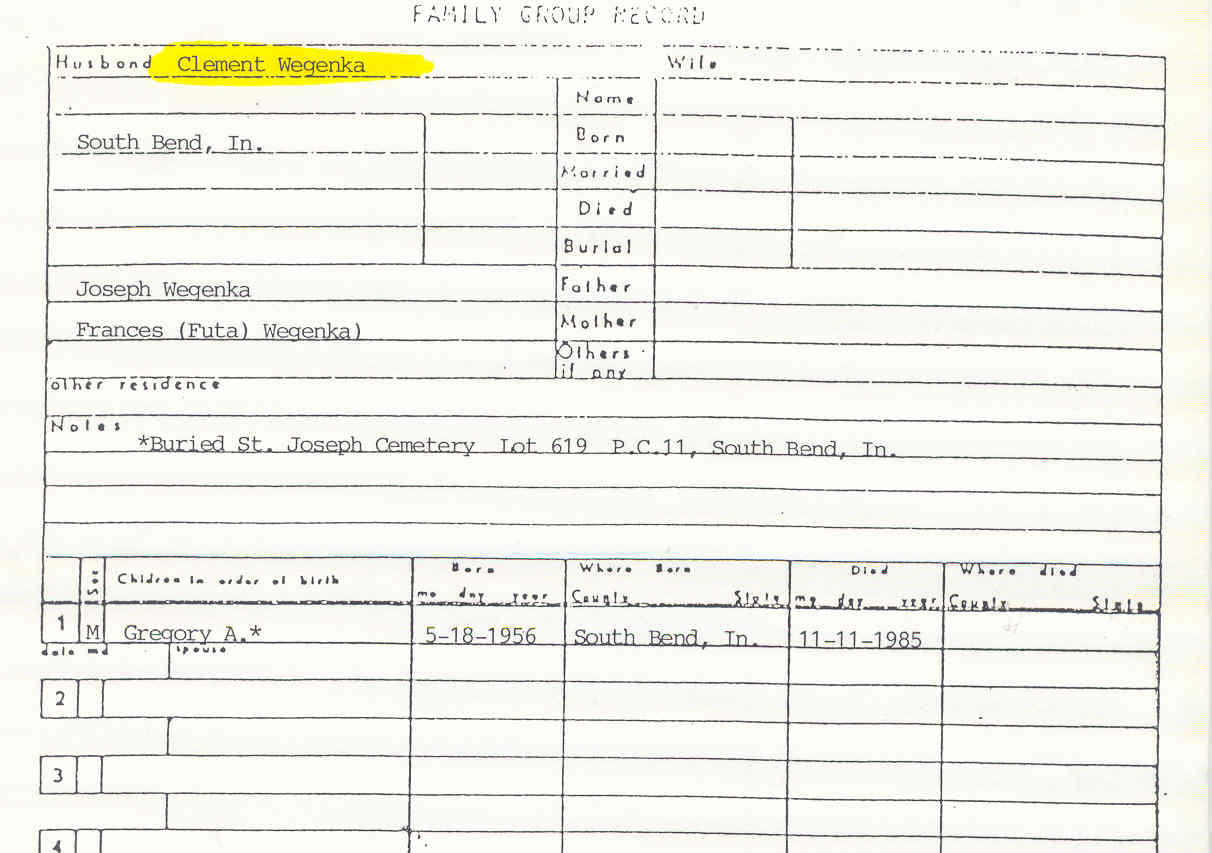 FAMILY GROUP RECORD
Husband Clement Wegenka Wife
Name
South Bend, In. Born
Married
Died
Burial
Joseph Wegenka Father
Frances (Futa) Wegenka) Mother
Others
if any
other residence
Notes
*Buried St. Joseph Cemetery Lot 619 P.C.11, South Bend, In.
Sex Children in order of birth Born Where Born Died Where died
mo day year County State mo day year County State
1 M Gregory A.* 5-18-1956 South Bend, In. 11-11-1985
date md spouse
2
3
4